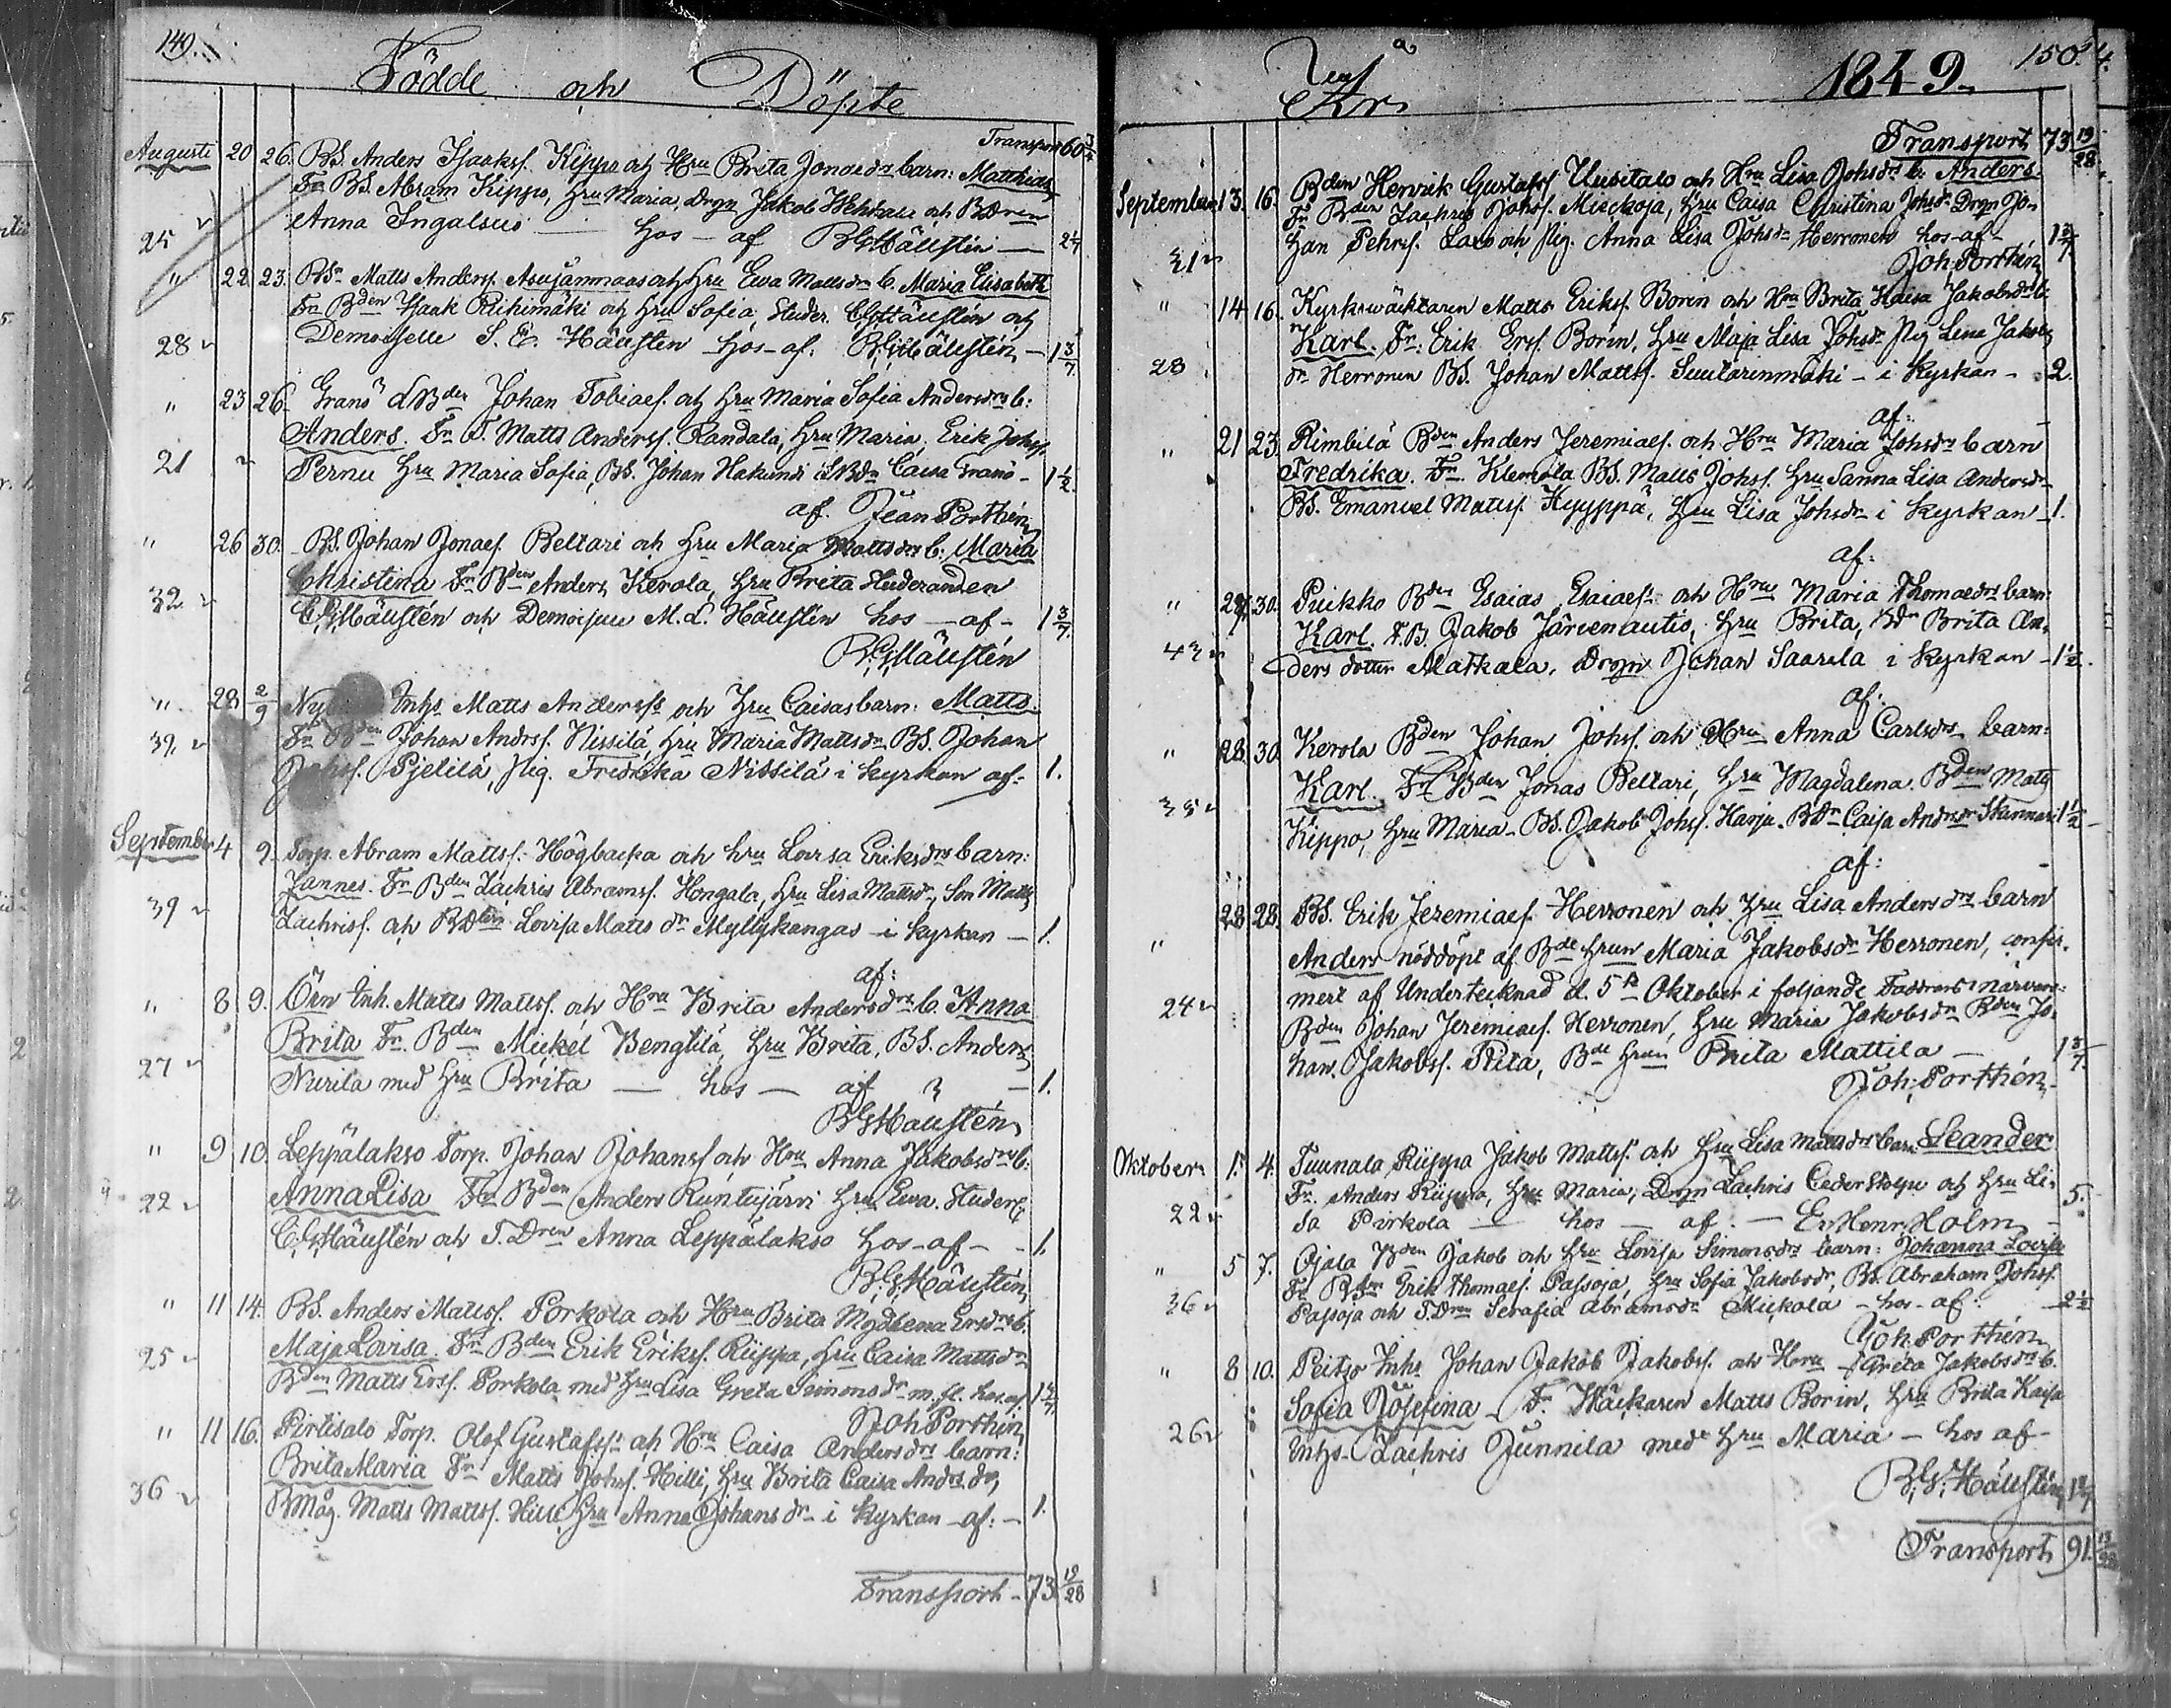 149.
Födde och Döpte
Transport 60 3/4
Augusti 20 26. BS. Anders Isaaksf. Kippo och Hru Brita Jonaedrs barn: Matthias
Fr BS. Abram Kippo, Hru Maria, Drgn Jakob Wehkala och BDren
25 Anna Ingalsuo hos - af BGHällstén 2 1/7
" 22. 23. BSn Matts Anderss. Asujänmaas och Hru Ewa Mattsdrs b. Maria Elisabeth
Fr Bden Isaak Riihimäki och Hru Sofia, Studer. CGHällstén och
28 Demoiselle S. E. Hällstén hos - af. BGHällstén - 1 3/7
" 23 26. Granö Bden Johan Tobiaes. och Hru Maria Sofia Andersdrs b:
Anders. Fr. T. Matts Anderss. Randala, Hru Maria. Erik Johss.
21 Pernu Hru Maria Sofia, BS. Johan Hakundi Caisa Granö - 1 1/2
af. Jean Porthén
" 26 30. BS. Johan Jonaes. Beltari och Hru Maria Mattsdrs b: Maria
Christina Fr Bden Anders Kerola, Hru Brita Studeranden
32 CGHällstén och Demoiselle M. L. Hällstén hos - af - 1 3/7
BGHällstén
" 28 2/9 Inhs Matts Anderss och Hru Caisas barn: Matts.
39. Fr Bden Johan Andrss. Nissilä, Hru Maria Mattsdr BS. Johan
Johss. Pjelilä, Pig. Fredrika Nissilä i Kyrkan af - 1.
September 4 9. Torp. Abram Mattss. Högbacka och Hru Lovisa Eriksdrs barn:
Jannes. Fr Bden Zachris Abramss. Hongala, Hru Lisa Mattsdr, Son Matts
39 Zachriss. och BDtren Lovisa Matts dr Myllykangas i Kyrkan - 1.
af:
" 8 9. Örn Inh. Matts Mattss. och Hru Brita Andersdrs b. Anna
Brita Fr. Bden Mickel Bengtilä, Hru Brita, BS. Anders
27 Nurila med Hru Brita - hos - af - 1.
BGHällstén
" 9 10. Leppälakso Torp. Johan Johanss och Hru Anna Jakobsdrs b:
Anna Lisa Fr Bden Anders Runtujärvi Hru Ewa. Studer
22 C. G. Hällstén och T. Dren Anna Leppälakso hos - af - 1.
BGHällstén
" 11 14. BS. Anders Mattss. Porkola och Hru Brita Magdlena Ersdrs b.
Maja Lovisa. Fr Bden Erik Erikss. Riippa, Hru Caisa Mattsdr
25 Bden Matts Erss. Porkola med Hru Lisa Greta Simonsdr m. fl. hos af. 1 3/7
Joh Porthén
" 11 16. Pirtisalo Torp. Olof Gustafss: och Hru Caisa Andersdrs barn:
Brita Maria Fr Matts Johss. Hilli, Hru Brita Caisa Andrsdr,
36 Bmåg. Matts Mattss. Hilli Hru Anna Johansdr - i Kyrkan - af: - 1.
Transport - 73 19/28
År 1849. 150.
Transport 73 19/28
September 13. 16. Bden Henrik Gustafss Uusitalo och Hru Lisa Johsdrs b: Anders.
Fr Bden Zachris Johss. Mickoja, Hru Caisa Christina Johsdr Drgn Jo-
31 han Pehrss. Laxo och Pig. Anna Lisa Johsdr Herronen hos - af - 1 3/7
Joh. Porthén
" 14 16. Kyrkowäcktaren Matts Erikss. Borin och Hru Brita Kaisa Jakobsdrs b.
Karl. Fr: Erik Erss. Borin, Hru Maja Lisa Johsdr Pig Lena Jakobs
28 dr Herronen BS. Johan Mattss. Suutarinmäki - i Kyrkan - 2.
af:
" 21 23. Rimbilä Bden Anders Jeremiaes. och Hru Maria Johsdrs barn
Fredrika. Fr. Klemola BS. Matts Johss. Hru Sanna Lisa Andersdr
BS. Emanuel Mattss. Kyyppä, Hru Lisa Johsdr i Kyrkan - 1.
af:
" 29. 30. Puikko Bden Esaias Esaiaes: och Hru Maria Thomaedrs barn:
Karl. F. B. Jakob Järvenautio, Hru Brita, Bdr Brita An-
43 ders dotter Matkala, Drgn Johan Saarela i Kyrkan - 1 1/2.
af:
" 28. 30. Kerola Bden Johan Johss. och Hru Anna Carlsdrs barn:
Karl. Fr Bden Jonas Beltari, Hru Magdalena. Bden Matts
35 Kippo, Hru Maria - BS. Jakob Johss. Harju. BDr Caisa Andrsdr Skannari 1 1/2
af:
" 28 28. BS. Erik Jeremiaes. Herronen och Hru Lisa Andersdrs barn
Anders nöddöpt af Bde Hrun Maria Jakobsdr Herronen, confir-
24 mert af Undertecknad d. 5te Oktober i foljande Faddrars närvaro:
Bden Johan Jeremiaes. Herronen, Hru Maria Jakobsdr Bden Jo-
han. Jakobss. Pitä, Bde Hrun Brita Mattila - 1 3/7
Joh. Porthén
Oktober 1. 4. Tuunala Riippa Jakob Mattss. och Hru Lisa Mattsdrs barn Leander
Fr. Anders Riippa, Hru Maria, Drgn Zachris Cederstolpe och Hru Li-
22 sa Pirkola - hos - af - Er. Henr. Holm 5.
" 5 7. Ojala Bden Jakob och Hru Lovisa Simonsdrs barn: Johanna Lovisa
Fr Bden Erik Thomaes. Passoja, Hru Sofia Jakobsdr, BS. Abraham Johss.
36 Passoja och T.Dren Serafia Abramsdr Mickola - hos - af: 2 1/2
Joh Porthén
" 8 10. Peitzo Inhs Johan Jakob Jakobss. och Hru Greta Jakobsdrs b.
Sofia Josefina - Fr. Wäckaren Matts Borin, Hru Brita Kaisa
26 Inhs. Zachris Junnila med Hru Maria - hos af -
B. G. Hällstén 1 3/7
Transport 91.